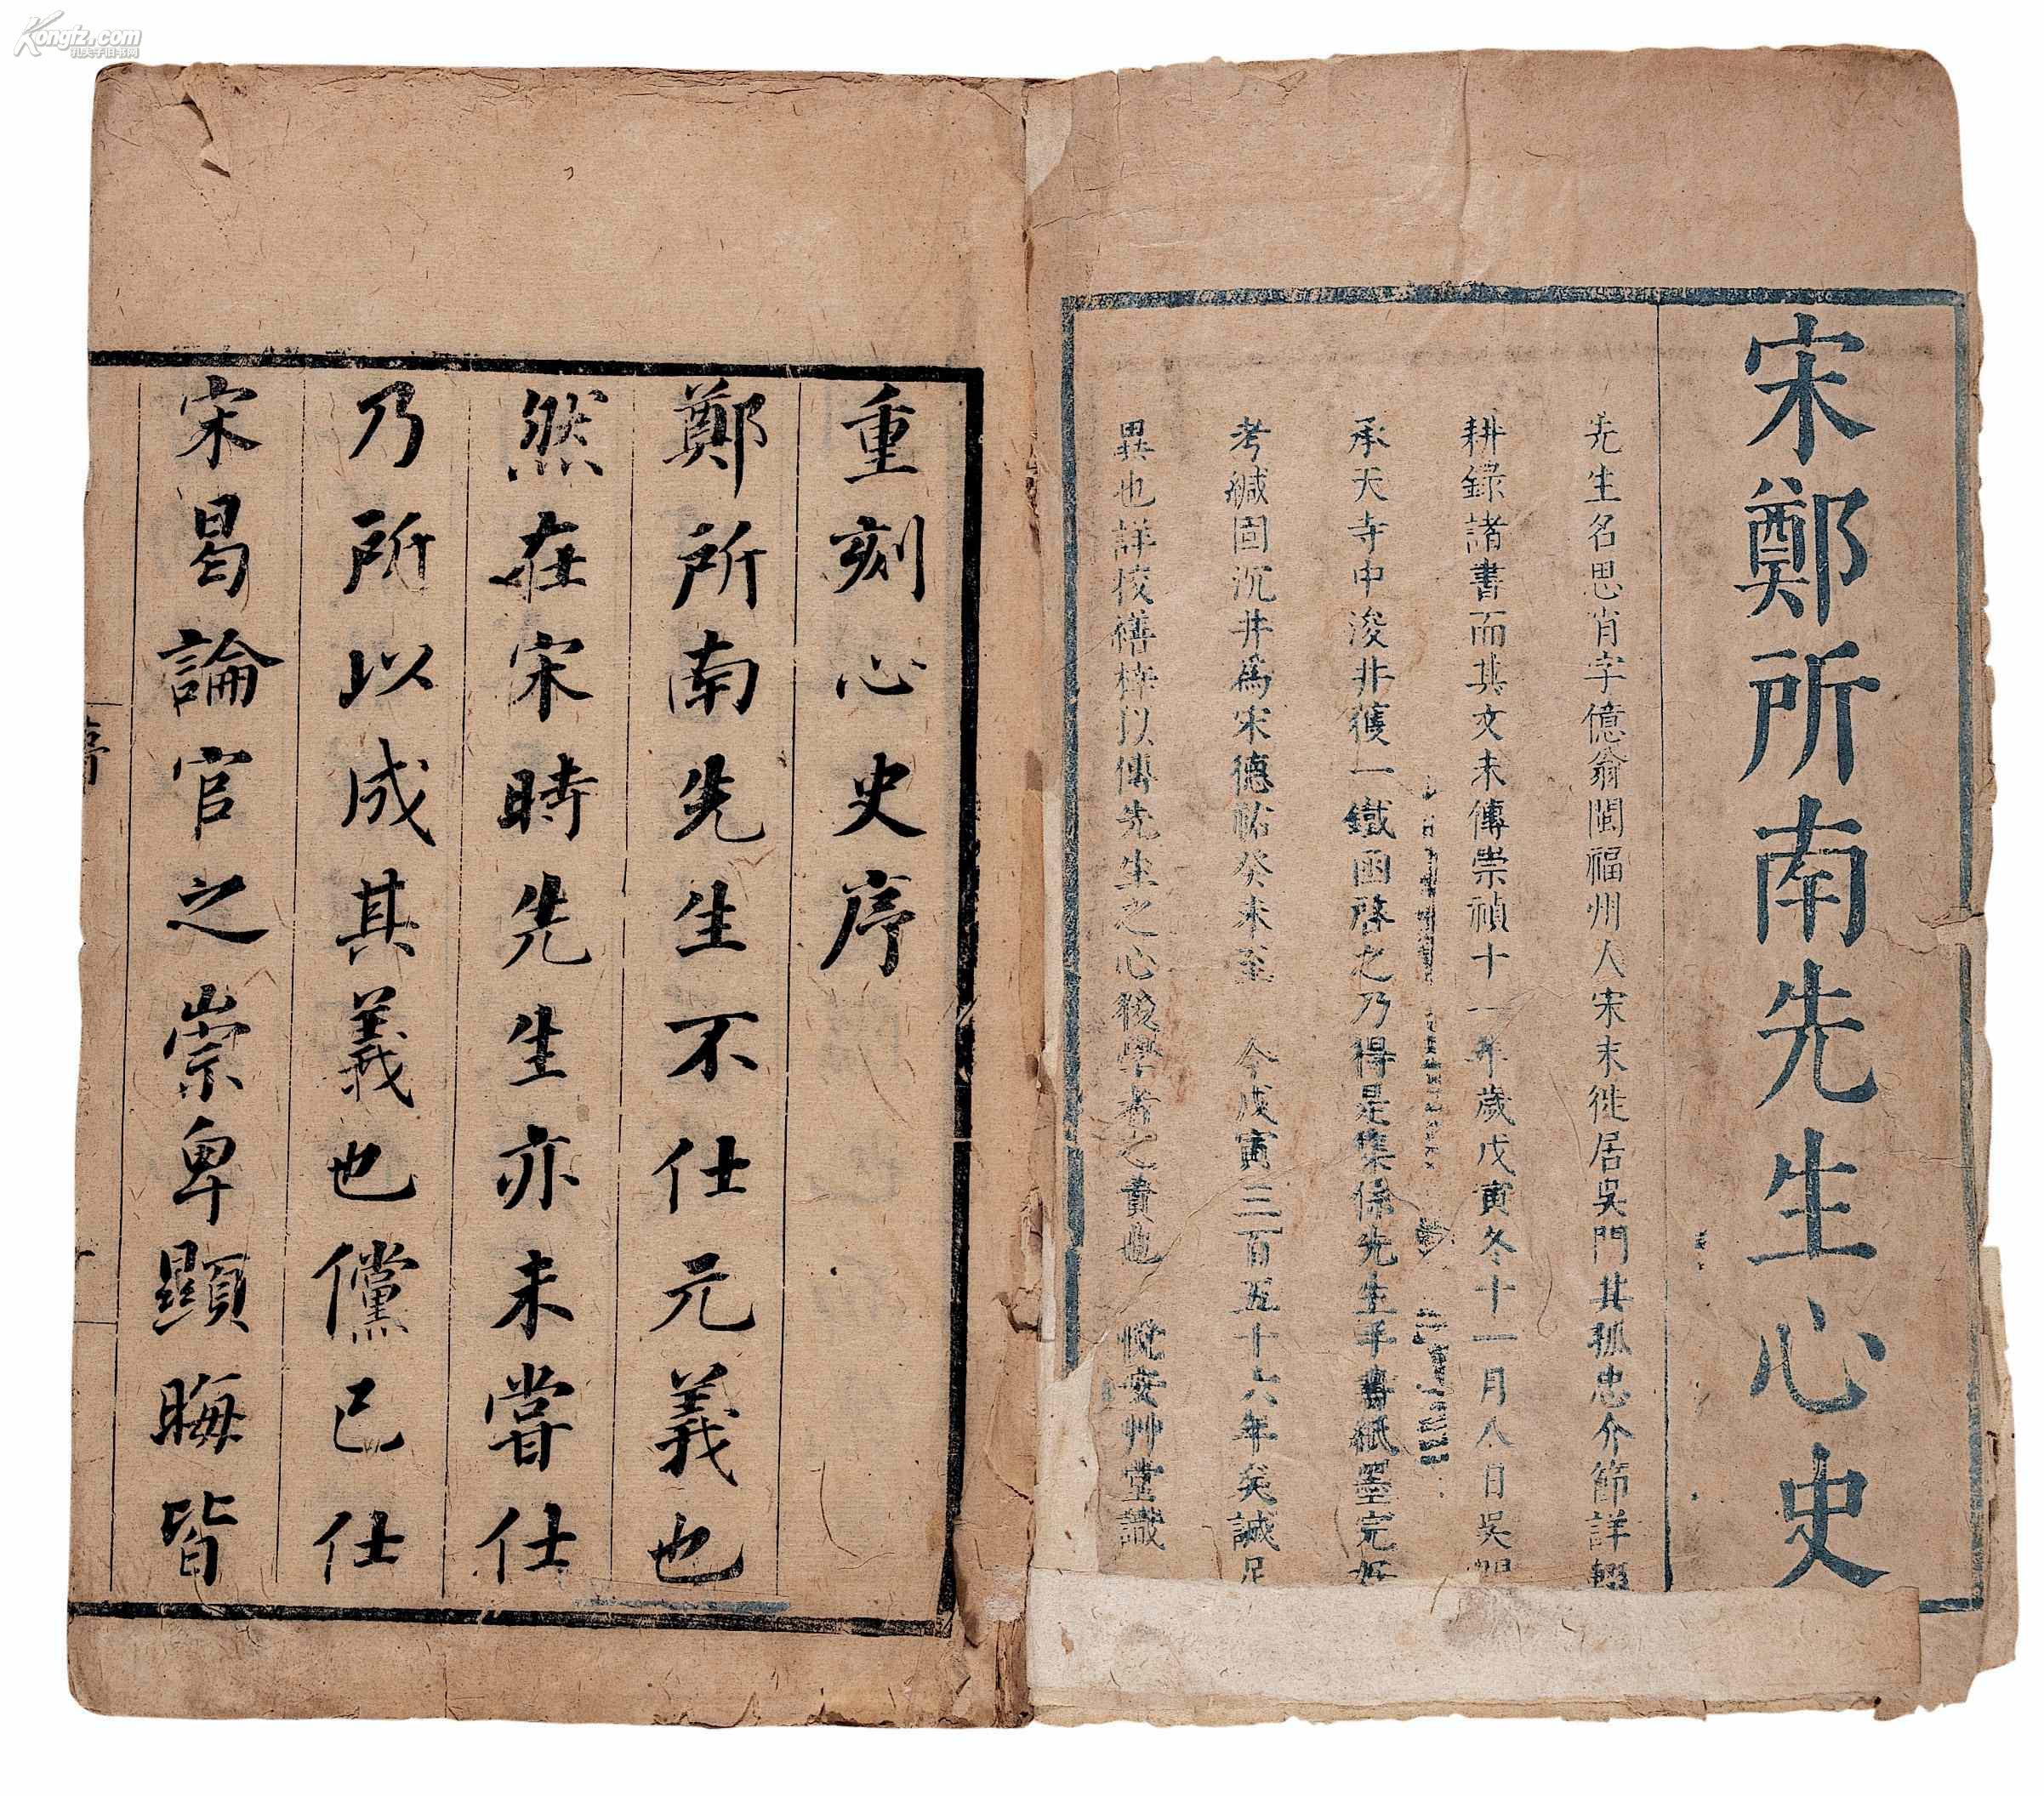 宋鄭所南先生心史
先生名思肖字億翁閩福州人宋末徙居吳門其孤忠介節詳輟
耕録諸書而其文未傳崇禎十一年歲戊寅冬十一月八日吳門
承天寺中浚井獲一鐵函啓之乃得是集係先生手書紙墨完好
考緘固沉井爲宋德祐癸未至 今戊寅三百五十六年矣誠足
異也詳校繕梓以傳先生之心後學者之責也 悅安艸堂識
重刻心史序
鄭所南先生不仕元義也
然在宋時先生亦未嘗仕
乃所以成其義也儻已仕
宋曷論官之崇卑顯晦皆
序
Kongfz.com
孔夫子旧书网